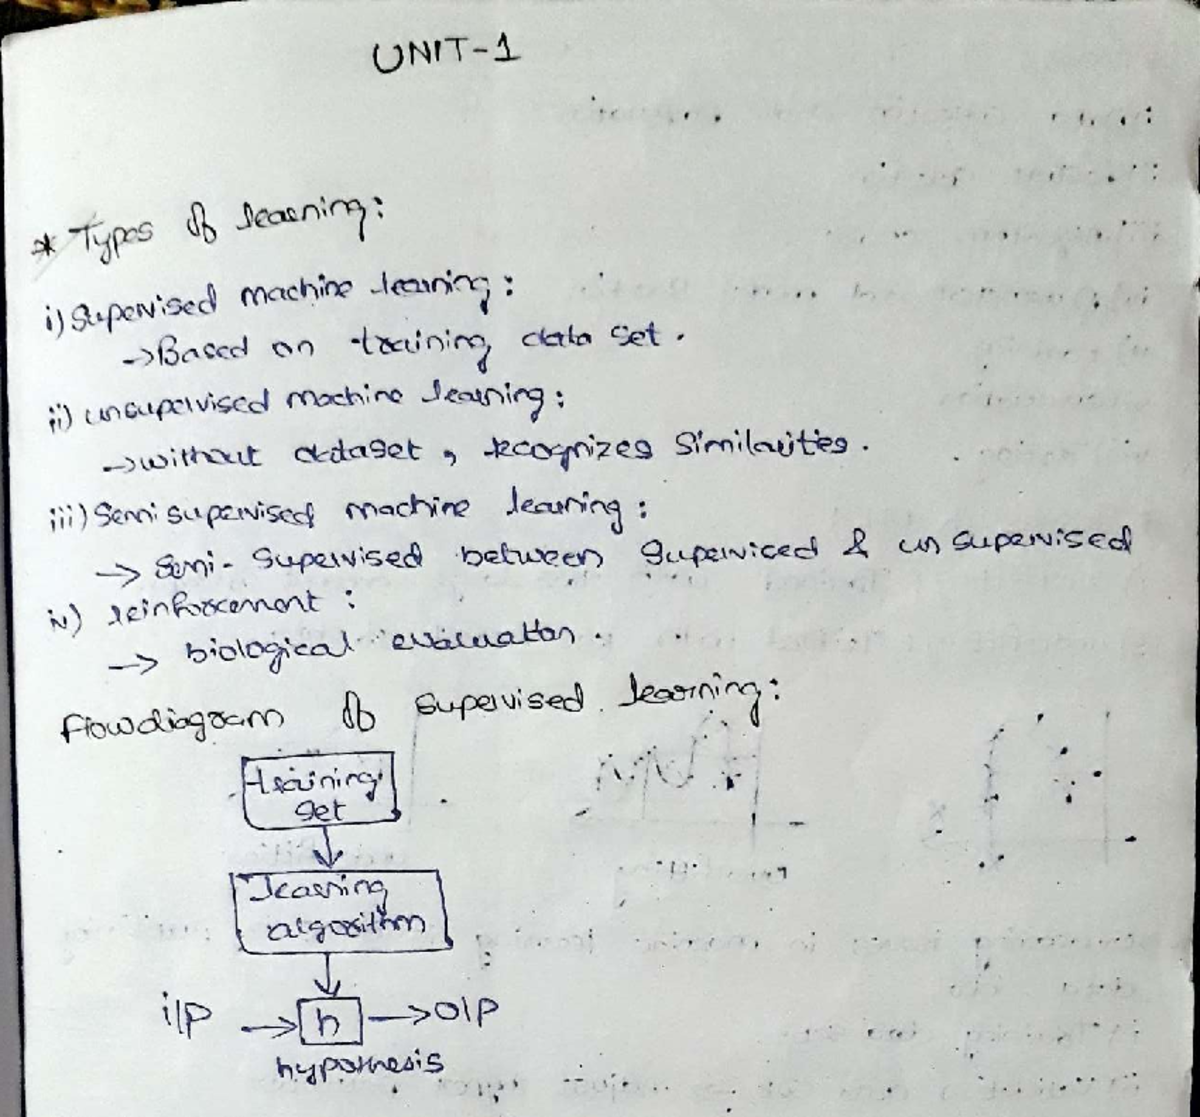 UNIT-1
* Types of learning:
i) Supervised machine learning:
→Based on training data set.
ii) unsupervised machine learning:
→without dataset, recognizes Similarities.
iii) Semi supervised machine learning:
→ Semi-Supervised between Supervised & un supervised
iv) reinforcement:
→ biological evaluation.
flowdiagram of supervised learning:
training
set
learning
algorithm
i/p → h → o/p
hypothesis